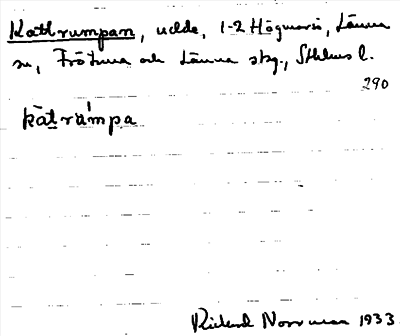 Kattrumpan, udde, 1-2 Högmarsö, Länna
sn, Frötuna och Länna skg., Sthlms l.
290
kàtrúmpa
Rickard Norrman 1933